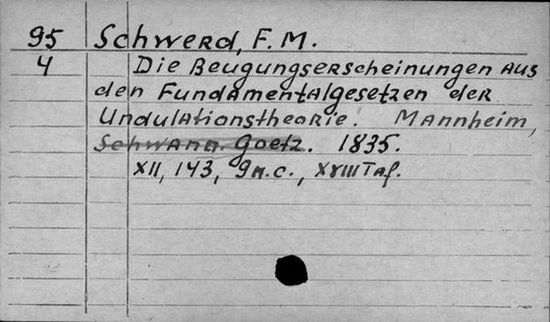 95 Schwerd, F. M.
4 Die Beugungserscheinungen aus
den Fundamentalgesetzen der
Undulationstheorie. Mannheim,
Schwann Goetz. 1835.
XII, 143, 9 n.c., XVIII Taf.